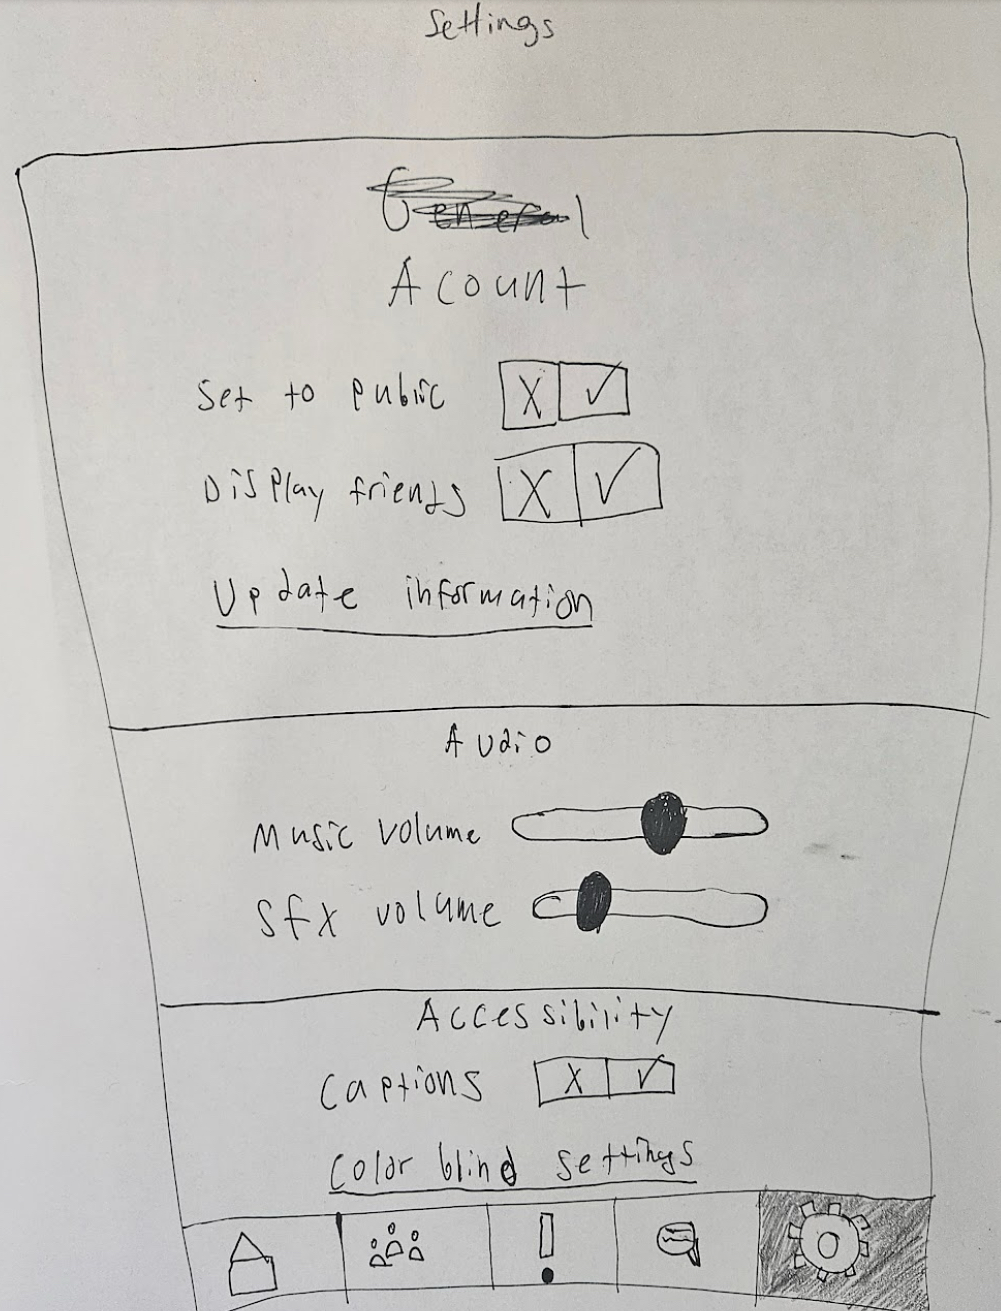 Settings
General
Acount
Set to public
Display friends
Update information
Audio
Music volume
Sfx volume
Accessibility
Captions
Color blind settings